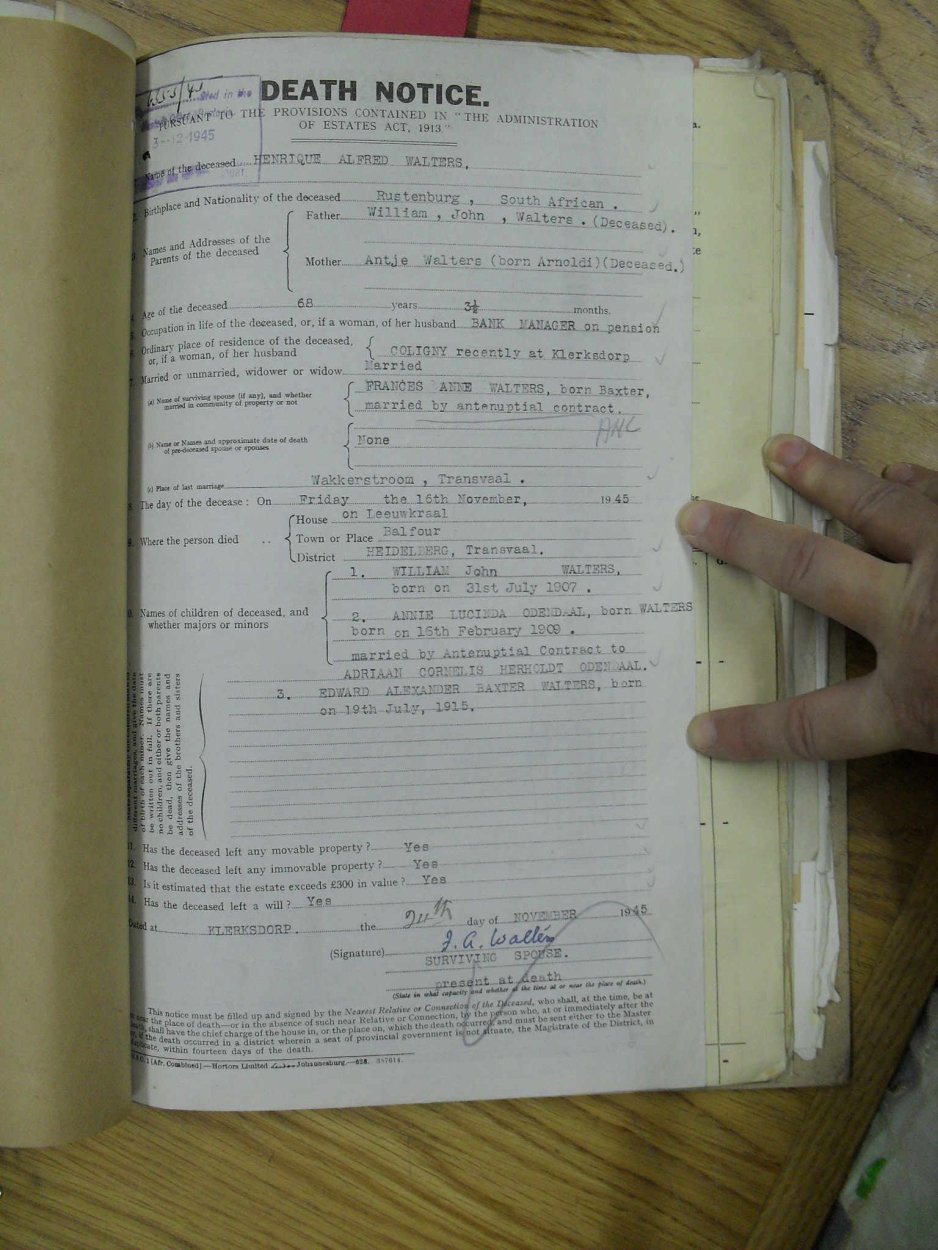 DEATH NOTICE.
PURSUANT TO THE PROVISIONS CONTAINED IN "THE ADMINISTRATION
OF ESTATES ACT, 1913."
3--12-1945
Name of the deceased HENRIQUE ALFRED WALTERS.
2. Birthplace and Nationality of the deceased Rustenburg , South African .
3. Names and Addresses of the Parents of the deceased
Father William , John , Walters . (Deceased).
Mother Antje Walters (born Arnoldi)(Deceased.)
Age of the deceased 68 years 3½ months.
5. Occupation in life of the deceased, or, if a woman, of her husband BANK MANAGER on pension
6. Ordinary place of residence of the deceased,
or, if a woman, of her husband COLIGNY recently at Klerksdorp
7. Married or unmarried, widower or widow Married
(a) Name of surviving spouse (if any), and whether
married in community of property or not
FRANCES ANNE WALTERS, born Baxter,
married by antenuptial contract.
ANC
(b) Name or Names and approximate date of death
of pre-deceased spouse or spouses
None
(c) Place of last marriage Wakkerstroom , Transvaal .
8. The day of the decease : On Friday the 16th November, 1945
9. Where the person died ..
House on Leeuwkraal
Town or Place Balfour
District HEIDELBERG, Transvaal.
0. Names of children of deceased, and
whether majors or minors
1. WILLIAM John WALTERS,
born on 31st July 1907 .
2. ANNIE LUCINDA ODENDAAL, born WALTERS
born on 16th February 1909 .
married by Antenuptial Contract to
ADRIAAN CORNELIS HERHOLDT ODENDAAL.
3. EDWARD ALEXANDER BAXTER WALTERS, born
on 19th July, 1915.
of birth of each minor. Names must
be written out in full. If there are
no children, and either or both parents
be dead, then give the names and
addresses of the brothers and sisters
of the deceased.
11. Has the deceased left any movable property ? Yes
12. Has the deceased left any immovable property ? Yes
13. Is it estimated that the estate exceeds £300 in value ? Yes
14. Has the deceased left a will ? Yes
Dated at KLERKSDORP. the day of NOVEMBER 1945
(Signature) F. A. Walters
SURVIVING SPOUSE.
present at death
(State in what capacity and whether at the time at or near the place of death.)
This notice must be filled up and signed by the Nearest Relative or Connection of the Deceased, who shall, at the time, be at
or near the place of death—or in the absence of such near Relative or Connection, by the person who, at or immediately after the
death, shall have the chief charge of the house in, or the place on, which the death occurred and must be sent either to the Master
or, if the death occurred in a district wherein a seat of provincial government is not situate, the Magistrate of the District, in
duplicate, within fourteen days of the death.
(Afr. Combined).—Hortors Limited Johannesburg.—628. 387614.